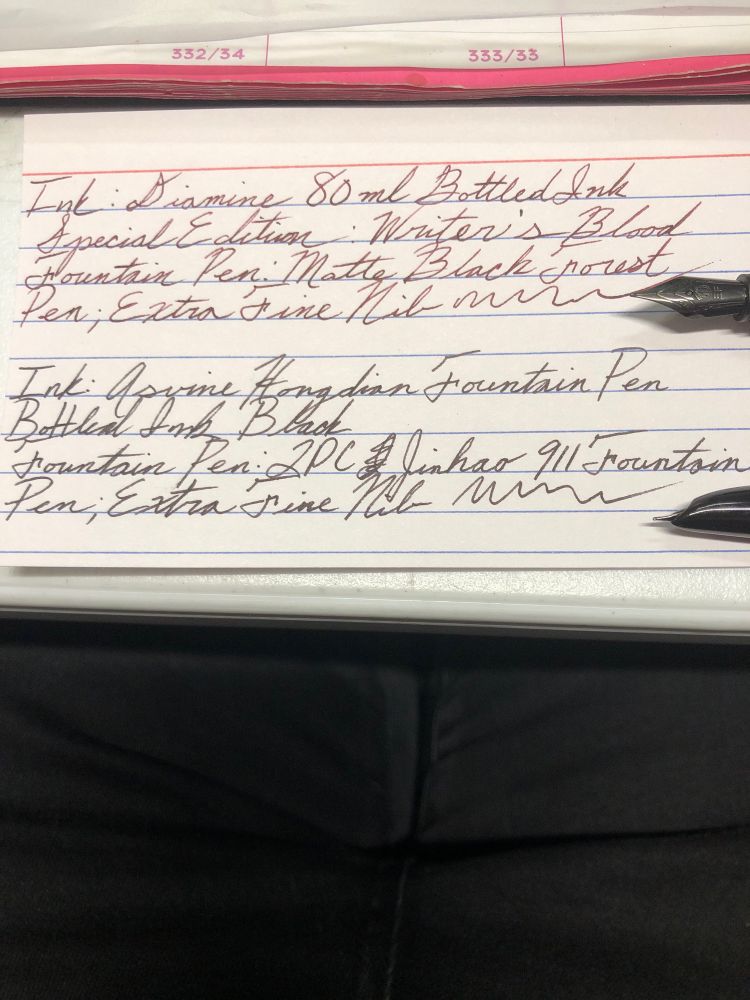 332/34 333/33
Ink: Diamine 80ml Bottled Ink
Special Edition: Writer's Blood
Fountain Pen: Matte Black Forest
Pen; Extra Fine Nib
Ink: Asvine Hongdian Fountain Pen
Bottled Ink Black
Fountain Pen: 2PC Jinhao 911 Fountain
Pen; Extra Fine Nib